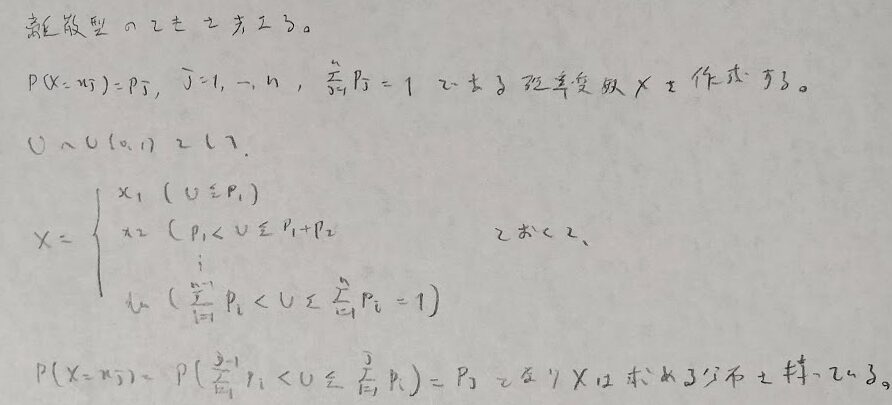 離散型のときを考える。
P(X=xj)=Pj, j=1, …, n, Σ_{j=1}^{n} Pj = 1 である確率変数Xを作成する。
U ~ U(0,1) として、
X = { x1 (U ≦ P1)
x2 (P1 < U ≦ P1+P2 とおくと、
⋮
xn (Σ_{i=1}^{n-1} Pi < U ≦ Σ_{i=1}^{n} Pi = 1)
P(X=xj) = P(Σ_{i=1}^{j-1} Pi < U ≦ Σ_{i=1}^{j} Pi) = Pj となりXは求める分布を持っている。